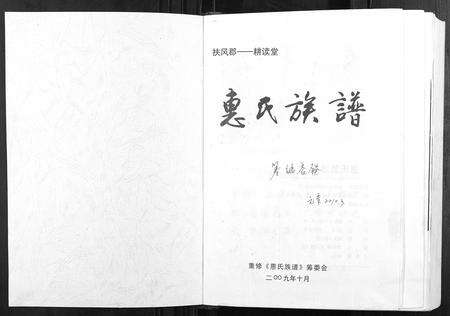 扶风郡——耕读堂
惠氏族譜
2010.3
重修《惠氏族谱》筹委会
二〇〇九年十月